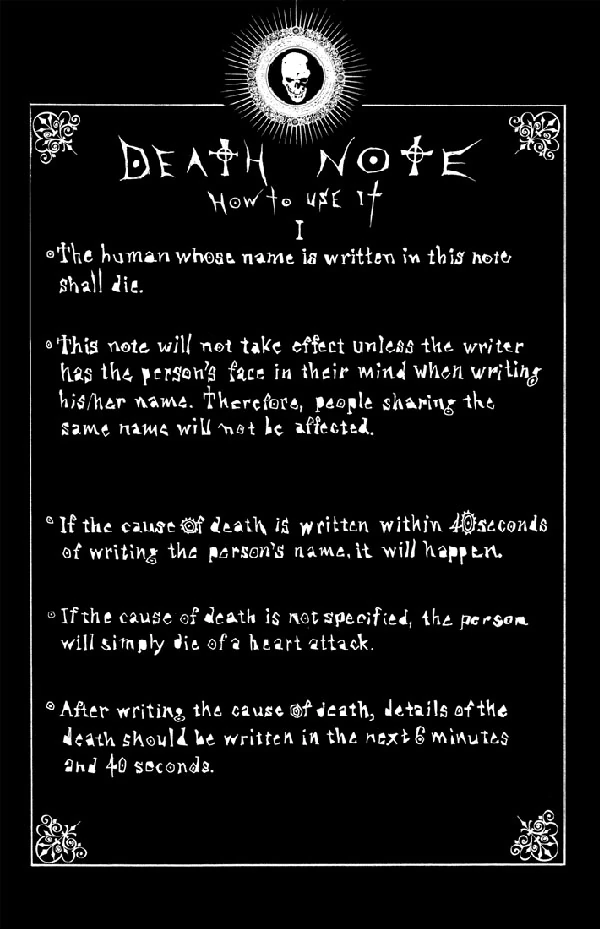 DEATH NOTE
HOW TO USE IT
I
The human whose name is written in this note
shall die.
This note will not take effect unless the writer
has the person's face in their mind when writing
his/her name. Therefore, people sharing the
same name will not be affected.
If the cause of death is written within 40 seconds
of writing the person's name, it will happen.
If the cause of death is not specified, the person
will simply die of a heart attack.
After writing the cause of death, details of the
death should be written in the next 6 minutes
and 40 seconds.